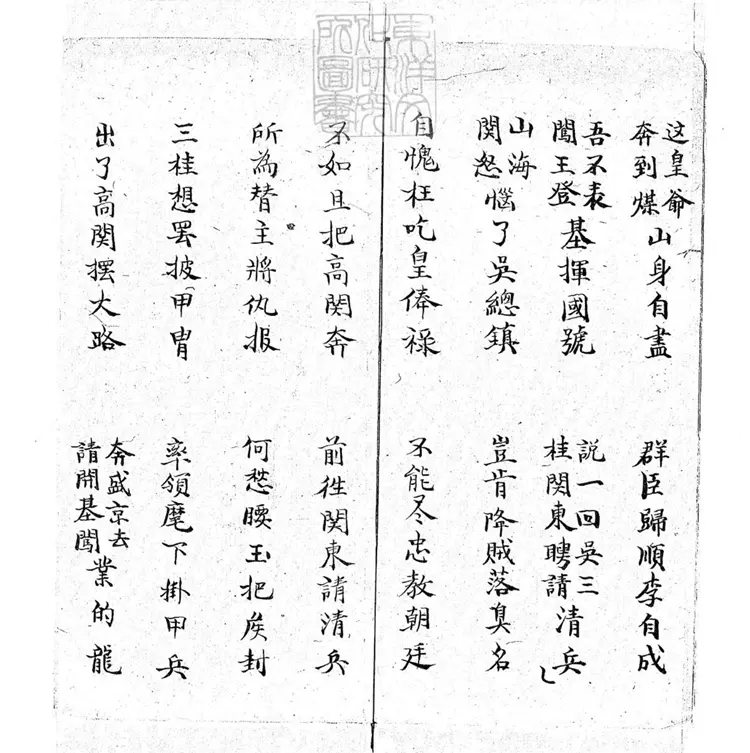 東洋文化研究所圖書
这皇爺奔到煤山身自盡
群臣歸順李自成
吾不表闖王登基揮國號
説一回吳三桂関東聘請清兵
山海関怒惱了吳總鎮
豈肯降賊落臭名
自愧枉吃皇俸祿
不能尽忠教朝廷
不如且把高関奔
前徃関東請清兵
所為替主將仇报
何愁腰玉把侯封
三桂想罢披甲胄
率領麾下掛甲兵
出了高関摆大路
奔盛京去請開基闖業的龍